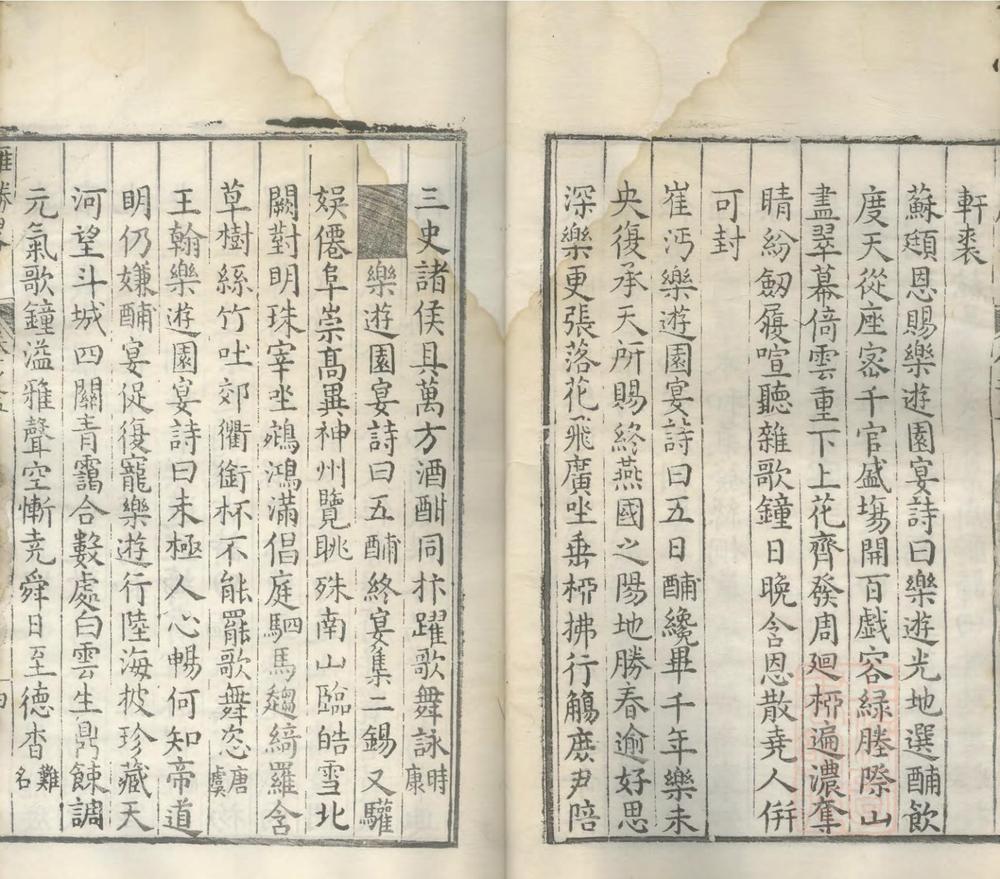 軒裘
蘇頲恩賜樂遊園宴詩曰樂遊光地選酺飲
度天從座密千官盛場開百戲容緑塍際山
盡翠幕倚雲重下上花齊發周廻桺遍濃奪
晴紛劒履喧聽雜歌鐘日晚含恩散堯人倂
可封
崔沔樂遊園宴詩曰五日酺纔畢千年樂未
央復承天所賜終燕國之陽地勝春逾好思
深樂更張落花飛廣坐垂桺拂行觴庶尹陪
三史諸侯具萬方酒酣同抃躍歌舞詠時康
樂遊園宴詩曰五酺終宴集二錫又驩
娛僊阜崇髙異神州覽眺殊南山臨皓雪北
闕對明珠宰坐鵷鴻滿倡庭駟馬趨綺羅含
草樹絲竹吐郊衢銜杯不能罷歌舞恣唐虞
王翰樂遊園宴詩曰未極人心暢何知帝道
明仍嫌酺宴促復寵樂遊行陸海披珍藏天
河望斗城四關青靄合數處白雲生鼎餗調
元氣歌鐘溢雅聲空慚堯舜日至德杳難名